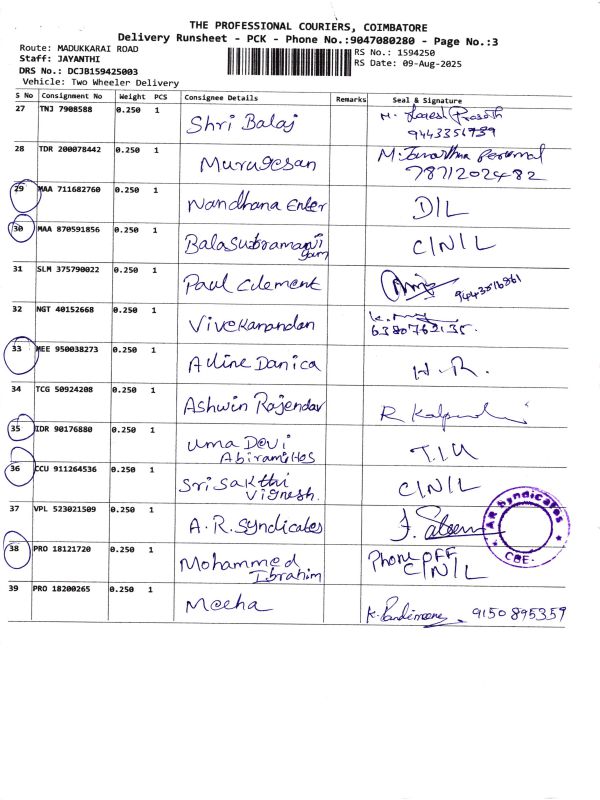 THE PROFESSIONAL COURIERS, COIMBATORE
Delivery Runsheet - PCK - Phone No.:9047080280 - Page No.:3
Route: MADUKKARAI ROAD
RS No.: 1594250
Staff: JAYANTHI
RS Date: 09-Aug-2025
DRS No.: DCJB159425003
Vehicle: Two Wheeler Delivery
S No Consignment No Weight PCS Consignee Details Remarks Seal & Signature
27 TNJ 7908588 0.250 1 Shri Balaj
9443356739
28 TDR 200078442 0.250 1 Murugesan
7871202482
29 MAA 711682760 0.250 1 Nandhana Enter D/L
30 MAA 870591856 0.250 1 Balasubramaniyam C/N/L
31 SLM 375790022 0.250 1 Paul Clement
32 NGT 40152668 0.250 1 Vivekanandan
6380762135.
33 MEE 950038273 0.250 1 Alline Danica H.R.
34 TCG 50924208 0.250 1 Ashwin Rajendar R
35 IDR 90176880 0.250 1 Uma Devi
Abiramittos T.I.U
36 CCU 911264536 0.250 1 Sri Sakthi
Vignesh. C/N/L
37 VPL 523021509 0.250 1 A.R. Syndicates
AR Syndicates
CBE.
38 PRO 18121720 0.250 1 Mohammed
Ibrahim Phone OFF
C/N/L
39 PRO 18200265 0.250 1 Meeha 9150895359